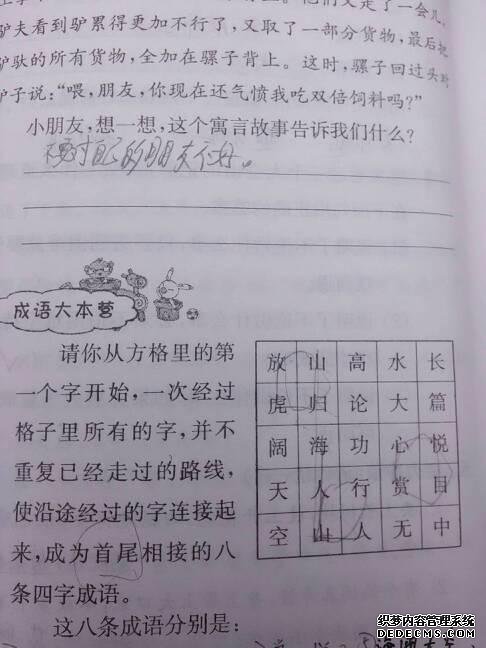 驴夫看到驴累得更加不行了,又取了一部分货物,最后把
驴驮的所有货物,全加在骡子背上。这时,骡子回过头
驴子说:“喂,朋友,你现在还气愤我吃双倍饲料吗?”
小朋友,想一想,这个寓言故事告诉我们什么?
成语大本营
请你从方格里的第
一个字开始,一次经过
格子里所有的字,并不
重复已经走过的路线,
使沿途经过的字连接起
来,成为首尾相接的八
条四字成语。
这八条成语分别是:
放 山 高 水 长
虎 归 论 大 篇
阔 海 功 心 悦
天 人 行 赏 目
空 山 人 无 中
织梦内容管理系统
DEDECMS.COM